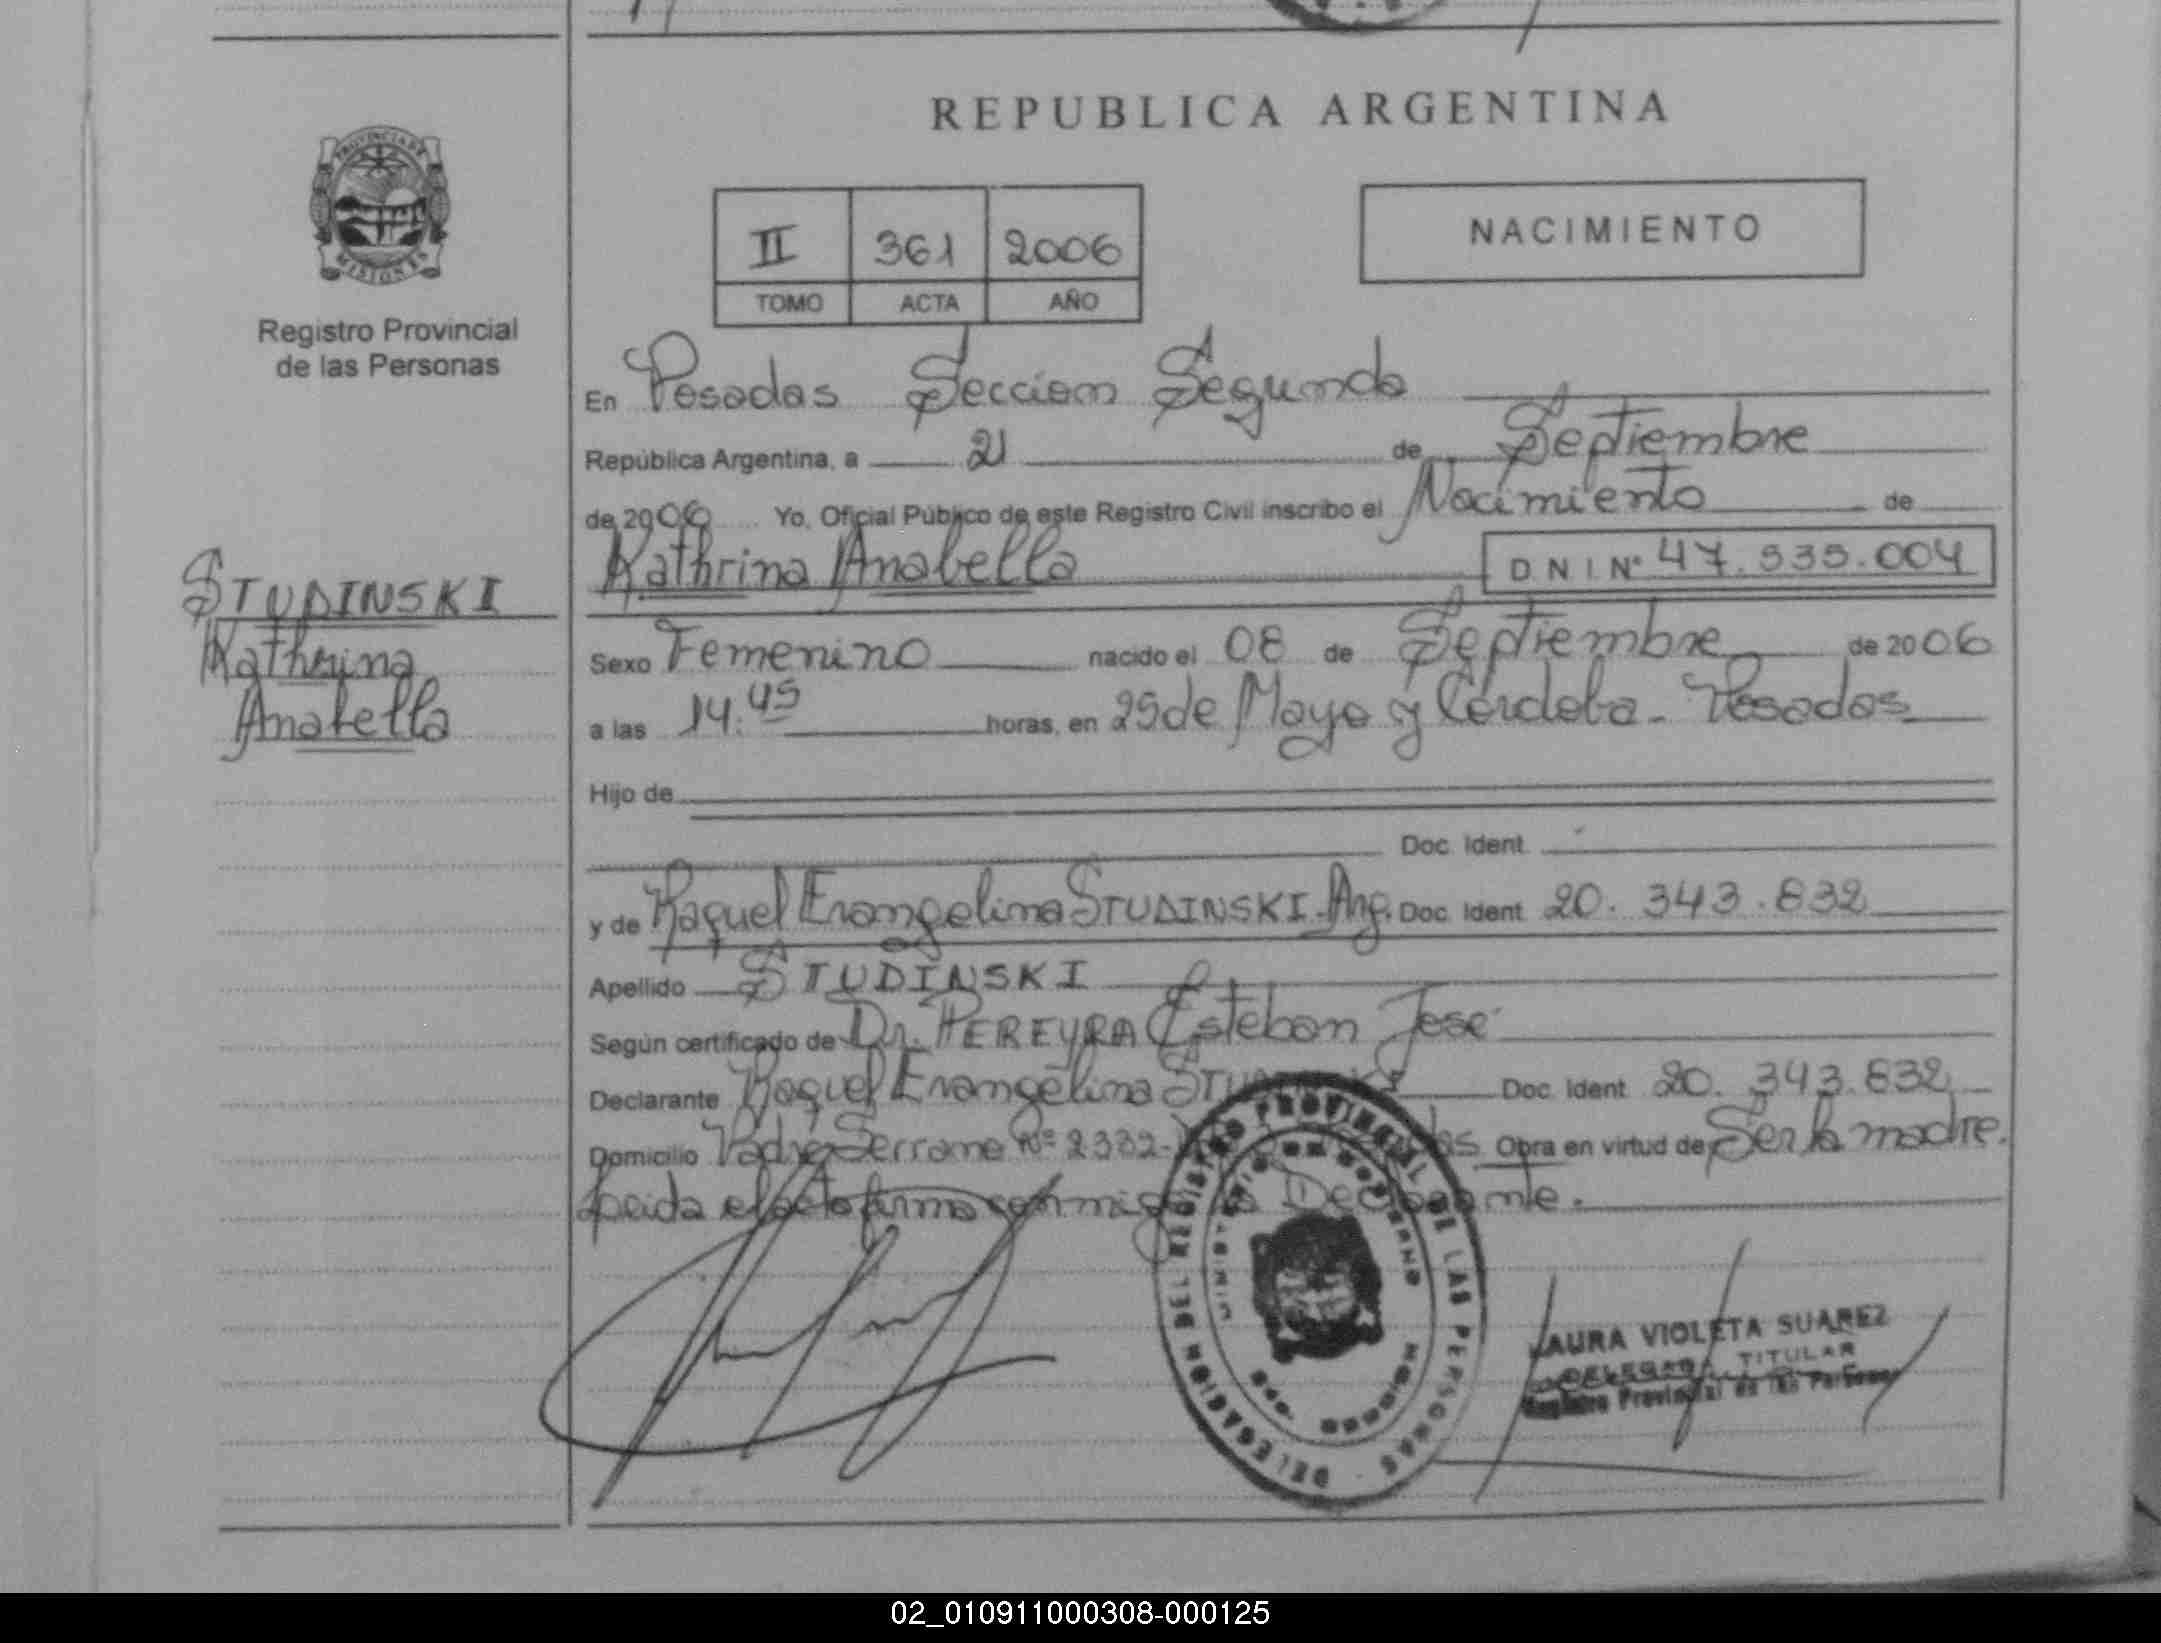 REPUBLICA ARGENTINA
PROVINCIA DE
MISIONES
Registro Provincial
de las Personas
II 361 2006
TOMO ACTA AÑO
NACIMIENTO
En Posadas Seccion Segunda
República Argentina, a 21 de Septiembre
de 2006 Yo, Oficial Público de este Registro Civil inscribo el Nacimiento de
Kathrina Anabella DNI Nº 47.535.004
STUDINSKI
Kathrina
Anabella
Sexo Femenino nacido el 08 de Septiembre de 2006
a las 14.45 horas, en 25 de Mayo y Córdoba - Posadas
Hijo de
Doc. Ident.
y de Raquel Evangelina STUDINSKI - Arg. Doc. Ident. 20.343.832
Apellido STUDINSKI
Según certificado de Dr. PEREYRA Esteban José
Declarante Raquel Evangelina STUDINSKI Doc. Ident. 20.343.832
Domicilio Padre Serrano Nº 2382 - Obra en virtud de Ser la madre.
Leida el acta firma conmigo la Declarante.
DELEGACION DEL REGISTRO PROVINCIAL DE LAS PERSONAS
MINISTERIO DE GOBIERNO
MISIONES
LAURA VIOLETA SUAREZ
DELEGADA TITULAR
Registro Provincial de las Personas
02_010911000308-000125